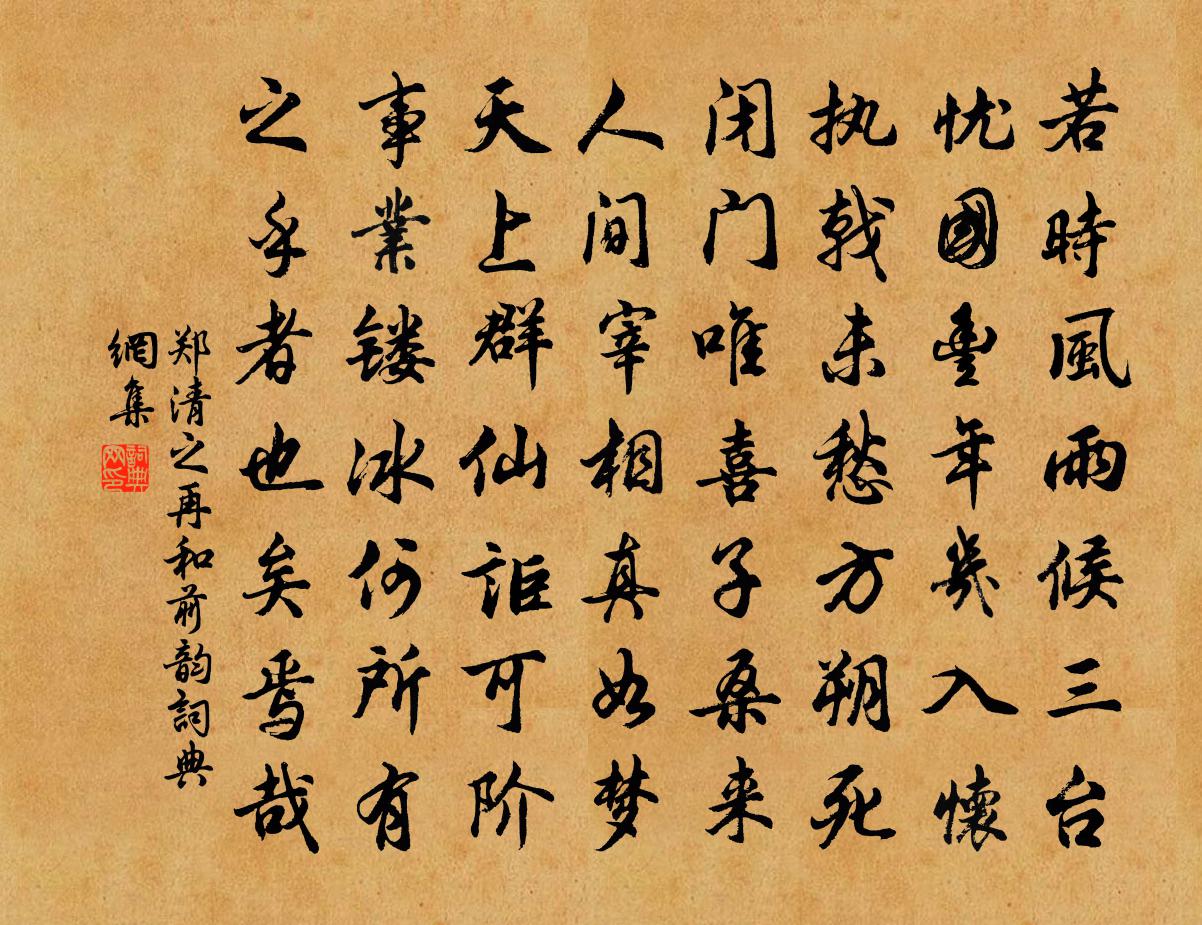 若時風雨候三台
忧國豊年幾入懷
执戟未愁方朔死
闭门唯喜子桑来
人间宰相真如梦
天上群仙讵可阶
事業镂冰何所有
之乎者也矣焉哉
郑清之再和前韵詞典
網集
詞典
网印